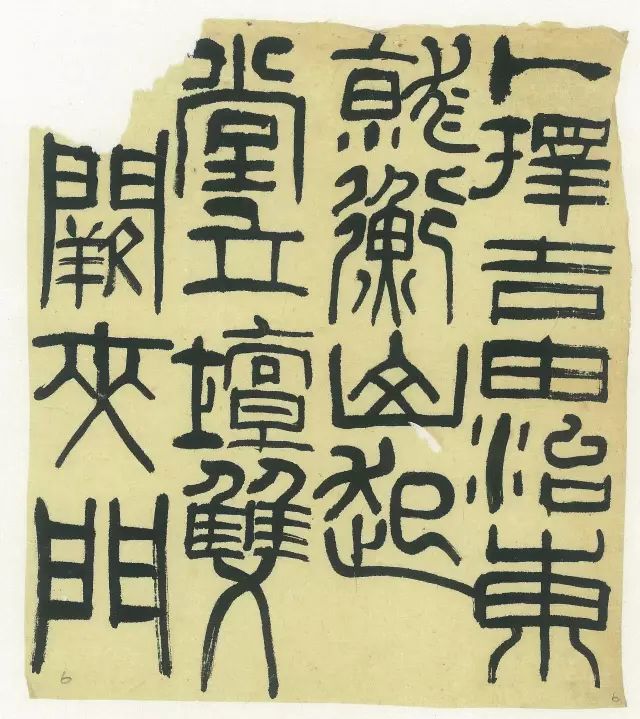 卜擇吉由治東
就衡山起
堂立壇雙
闕夾門
6
6